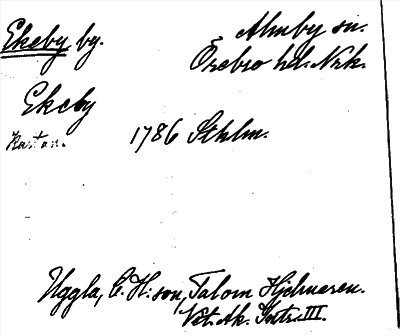 Ekeby by.
Almby sn.
Örebro hd. Nrk.
Ekeby
Kartan.
1786 Sthlm.
Uggla, C. H:son, Talom Hjelmaren.
Vet. Ak. Intr. III.